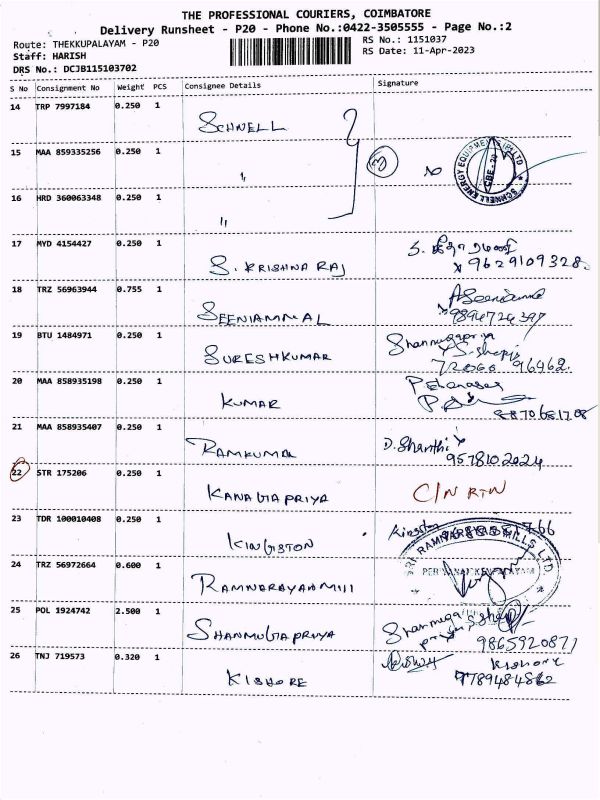 THE PROFESSIONAL COURIERS, COIMBATORE
Delivery Runsheet - P20 - Phone No.:0422-3505555 - Page No.:2
Route: THEKKUPALAYAM - P20
RS No.: 1151037
Staff: HARISH
RS Date: 11-Apr-2023
DRS No.: DCJB115103702
S No Consignment No Weight PCS Consignee Details Signature
14 TRP 7997184 0.250 1 SCHNELL
15 MAA 859335256 0.250 1 " 3
SCHNELL ENERGY EQUIPMENTS (P) LTD
16 HRD 360063348 0.250 1 "
17 MYD 4154427 0.250 1 S. KRISHNA RAJ
9629109328
18 TRZ 56963944 0.755 1 SEENIAMMAL
19 BTU 1484971 0.250 1 SURESHKUMAR
20 MAA 858935198 0.250 1 KUMAR
21 MAA 858935407 0.250 1 RAMKUMAL D. Shanthi
9578102024
22 STR 175206 0.250 1 KANAGAPRIYA C/N RTN
23 TDR 100010408 0.250 1 KINGISTON
24 TRZ 56972664 0.600 1 RAMNARAYAN MILL
25 POL 1924742 2.500 1 SHANMUGAPRIYA
9865920871
26 TNJ 719573 0.320 1 KISHORE Kishore